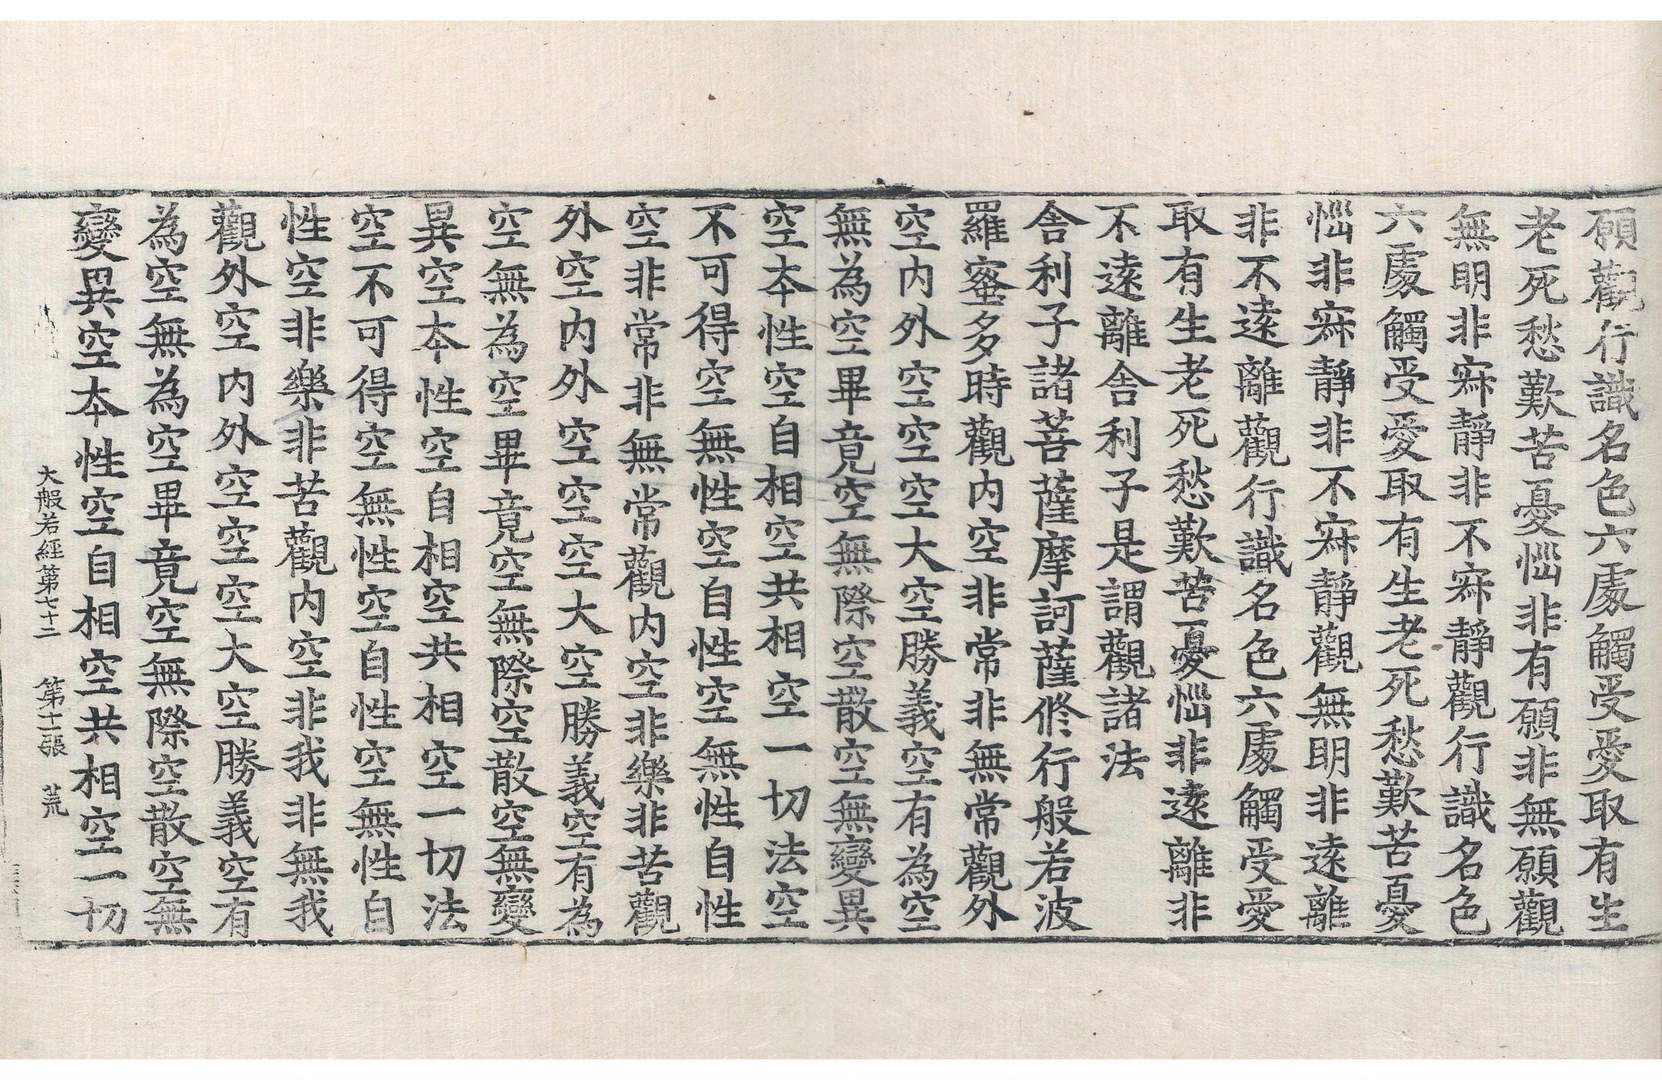 願觀行識名色六處觸受愛取有生
老死愁歎苦憂惱非有願非無願觀
無明非寂靜非不寂靜觀行識名色
六處觸受愛取有生老死愁歎苦憂
惱非寂靜非不寂靜觀無明非遠離
非不遠離觀行識名色六處觸受愛
取有生老死愁歎苦憂惱非遠離非
不遠離舍利子是謂觀諸法
舍利子諸菩薩摩訶薩修行般若波
羅蜜多時觀內空非常非無常觀外
空內外空空空大空勝義空有為空
無為空畢竟空無際空散空無變異
空本性空自相空共相空一切法空
不可得空無性空自性空無性自性
空非常非無常觀內空非樂非苦觀
外空內外空空空大空勝義空有為
空無為空畢竟空無際空散空無變
異空本性空自相空共相空一切法
空不可得空無性空自性空無性自
性空非樂非苦觀內空非我非無我
觀外空內外空空空大空勝義空有
為空無為空畢竟空無際空散空無
變異空本性空自相空共相空一切
大般若經第七十二 第十一張 荒